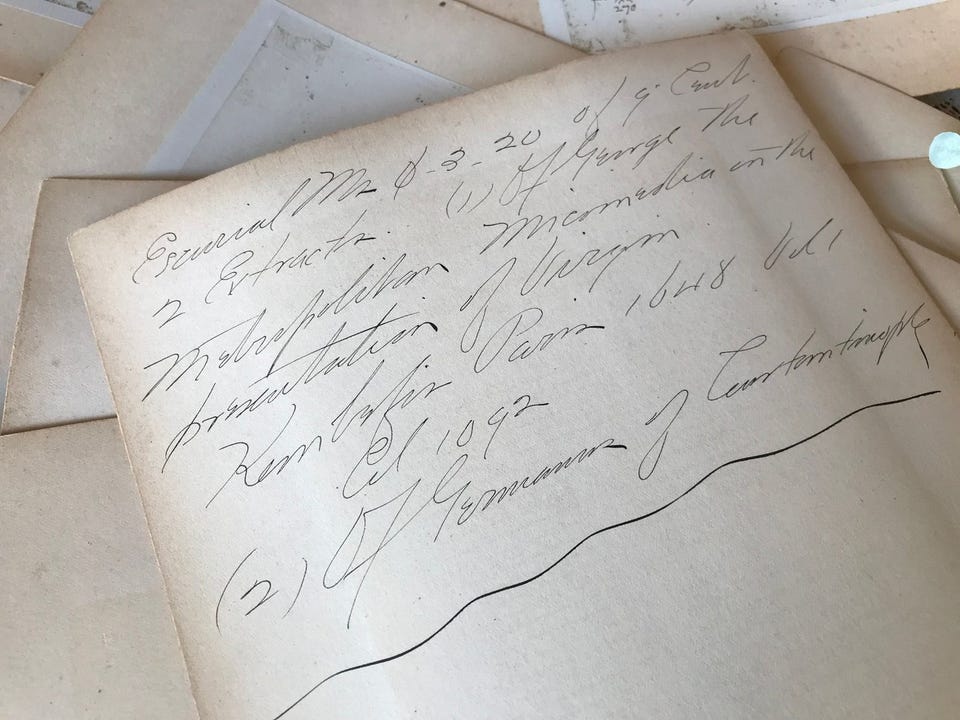 Escurial Ms Φ-3-20 of 9 Cent.
2 Extracts. (1) Of George The
Metropolitan Nicomedia on the
presentation of Virgin
Paris 1648 Vol 1
Col 1092
(2) Of Germanus of Constantinople